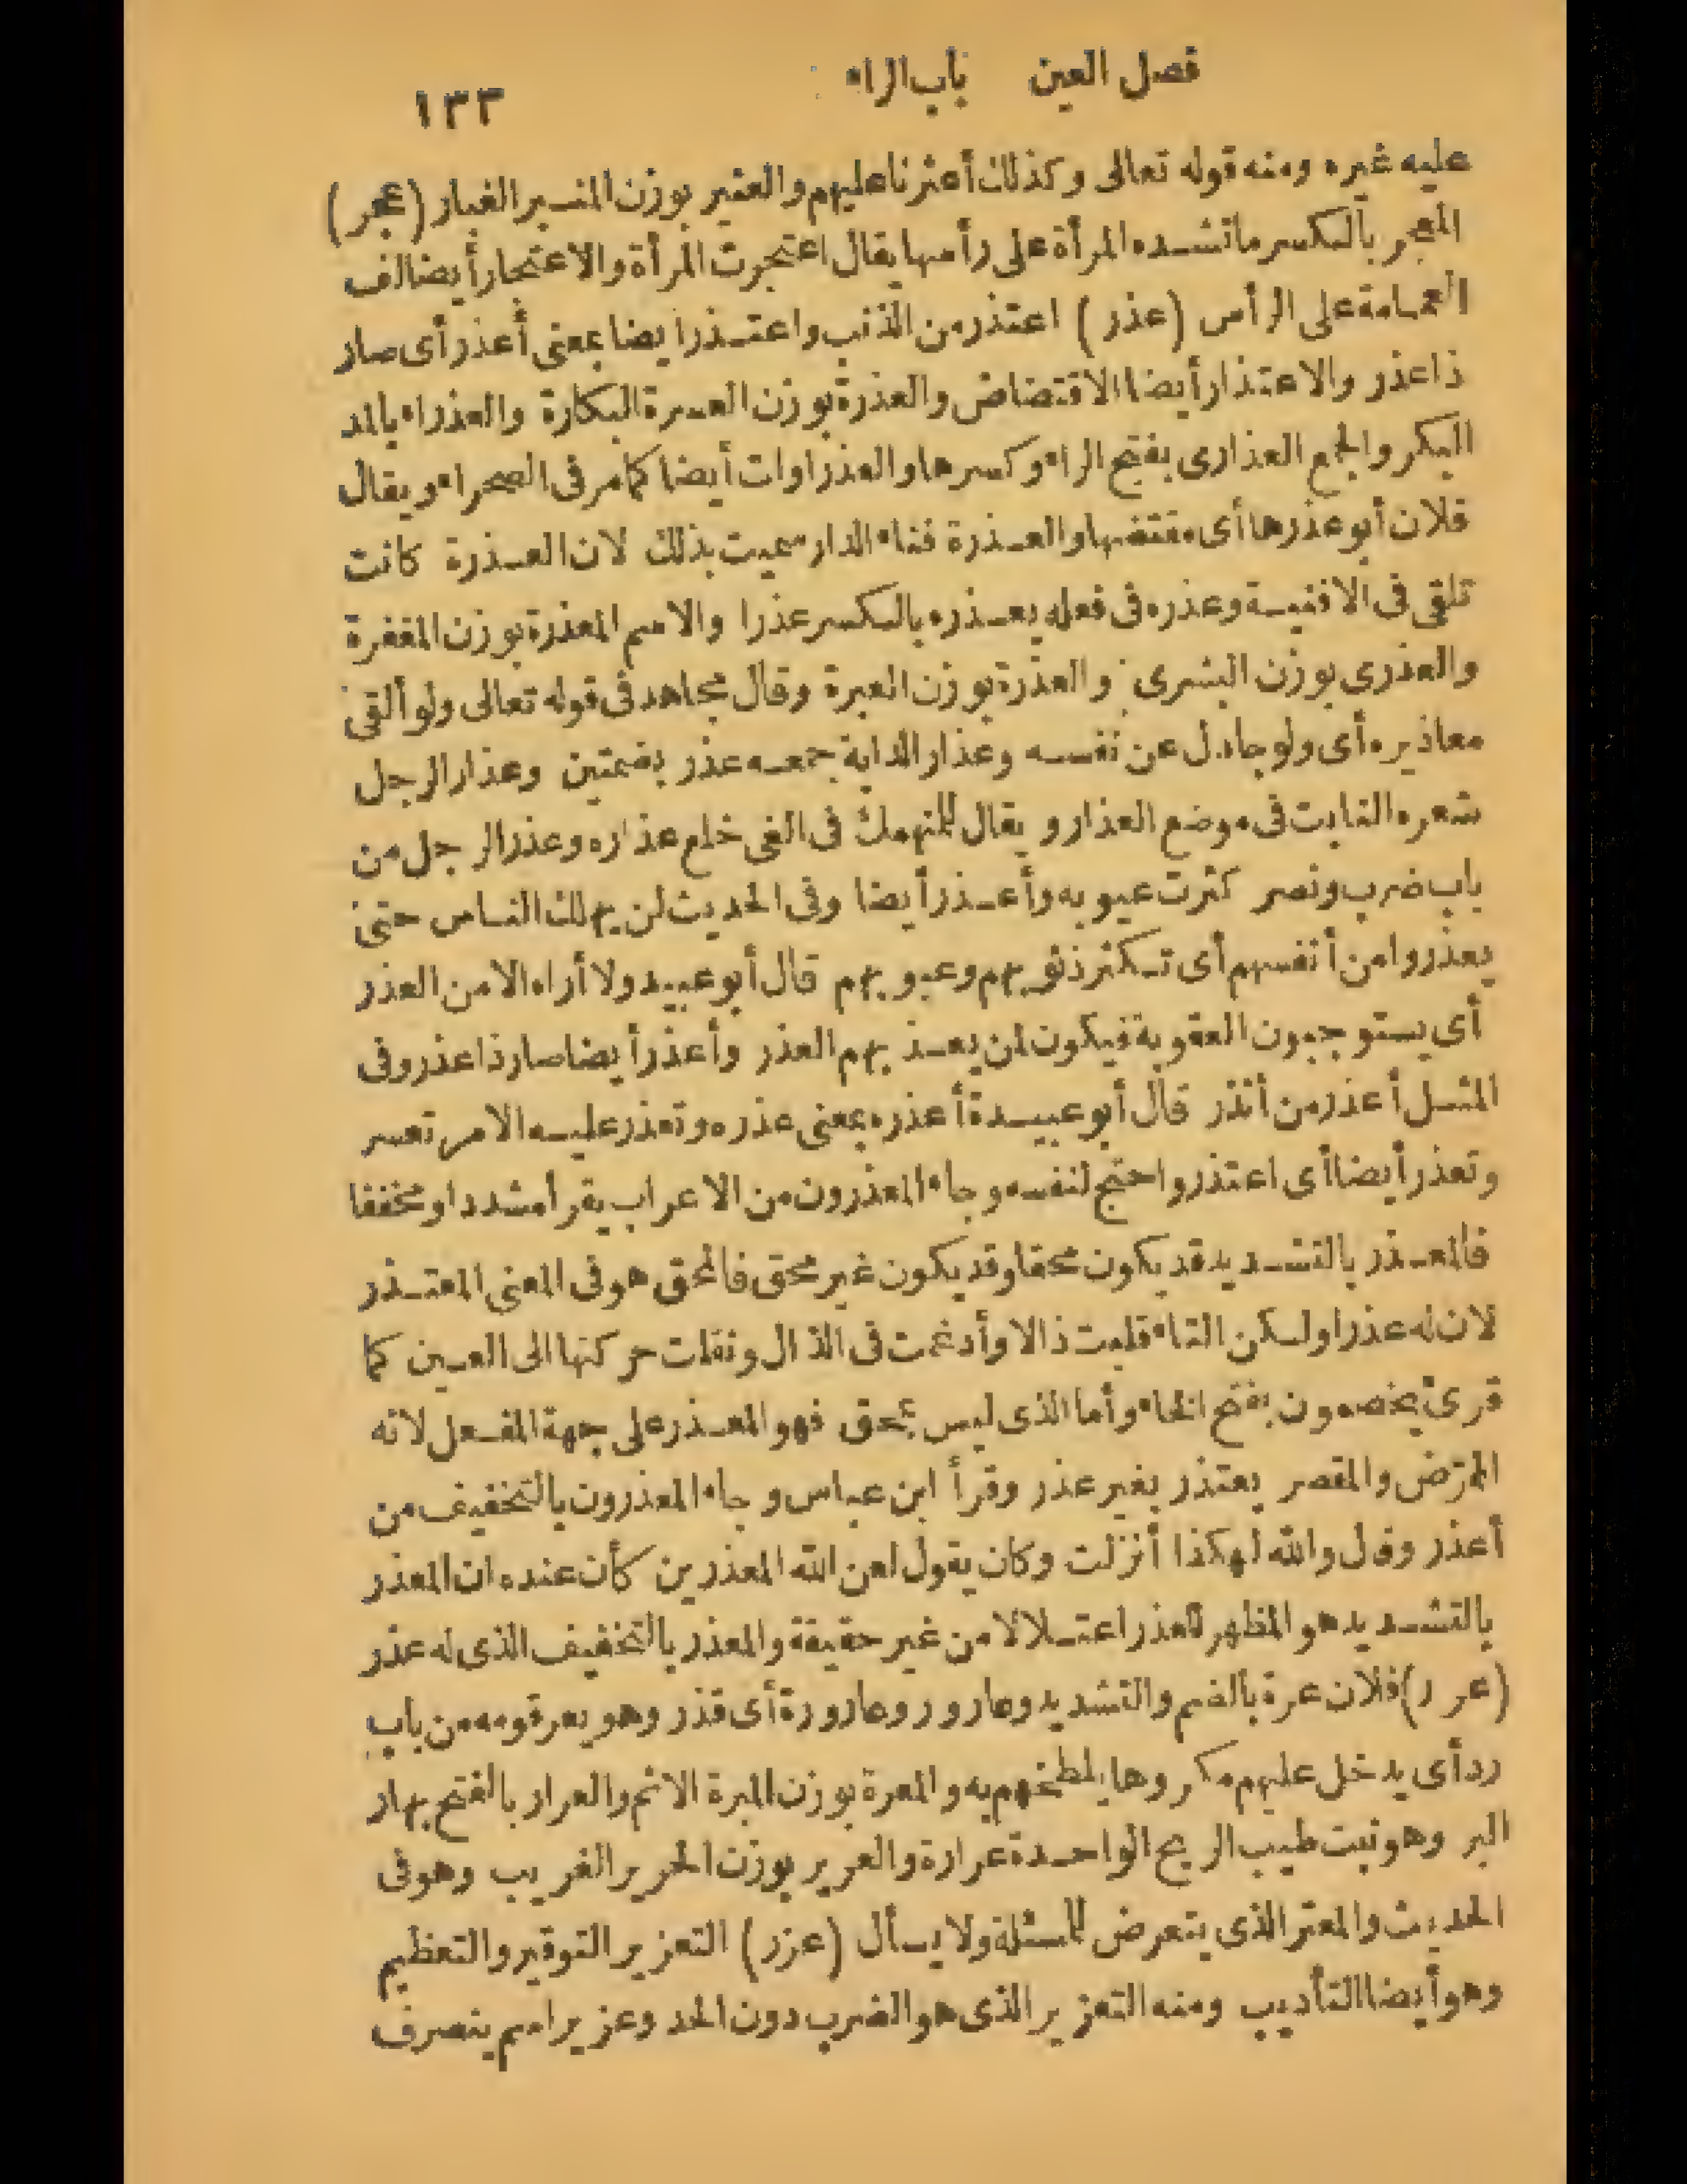 فصل العين باب الراء ١٣٣
عليه غيره ومنه قوله تعالى وكذلك أعثرنا عليهم والعثير بوزن المنبر الغبار (عجر)
المعجر بالكسر ما تشده المرأة على رأسها يقال اعتجرت المرأة والاعتجار أيضا لف
العمامة على الرأس (عذر) اعتذر من الذنب واعتذر أيضا بمعنى أعذر أى صار
ذا عذر والاعتذار أيضا الاقتضاض والعذرة بوزن العسرة البكارة والعذراء بالمد
البكر والجمع العذارى بفتح الراء وكسرها والعذراوات أيضا كما مر فى الصحراء ويقال
فلان أبو عذرها أى مقتضها والعذرة فناء الدار سميت بذلك لان العذرة كانت
تلقى فى الافنية وعذره فى فعله يعذره بالكسر عذرا والاسم المعذرة بوزن المغفرة
والعذرى بوزن البشرى والعذرة بوزن العبرة وقال مجاهد فى قوله تعالى ولو ألقى
معاذيره أى ولو جادل عن نفسه وعذار الدابة جمعه عذر بضمتين وعذار الرجل
شعره النابت فى موضع العذار ويقال للمنهمك فى الغى خلع عذاره وعذر الرجل من
باب ضرب ونصر كثرت عيوبه وأعذر أيضا وفى الحديث لن يهلك الناس حتى
يعذروا من أنفسهم أى تكثر ذنوبهم وعيوبهم قال أبو عبيد ولا أراه الا من العذر
أى يستوجبون العقوبة فيكون لمن يعذبهم العذر وأعذر أيضا صار ذا عذر وفى
المثل أعذر من أنذر قال أبو عبيدة أعذره بمعنى عذره وتعذر عليه الامر تعسر
وتعذر أيضا أى اعتذر واحتج لنفسه وجاء المعذرون من الاعراب يقرأ مشددا ومخففا
فالمعذر بالتشديد قد يكون محقا وقد يكون غير محق فالمحق هو فى المعنى المعتذر
لان له عذرا ولكن التاء قلبت ذالا وأدغمت فى الذال ونقلت حركتها الى العين كما
قرئ يخصمون بفتح الخاء وأما الذى ليس بمحق فهو المعذر على جهة المفعل لانه
الممرض والمقصر يعتذر بغير عذر وقرأ ابن عباس وجاء المعذرون بالتخفيف من
أعذر وقال والله لهكذا أنزلت وكان يقول لعن الله المعذرين كأن عنده ان المعذر
بالتشديد هو المظهر للعذر اعتلالا من غير حقيقة والمعذر بالتخفيف الذى له عذر
(عرر) فلان عرة بالضم والتشديد وعارور وعارورة أى قذر وهو يعر قومه من باب
رد أى يدخل عليهم مكروها يلطخهم به والمعرة بوزن المبرة الاثم والعرار بالفتح بهار
البر وهو نبت طيب الريح الواحدة عرارة والعرير بوزن الحرير الغريب وهو فى
الحديث والمعتر الذى يتعرض للمسئلة ولا يسأل (عزر) التعزير التوقير والتعظيم
وهو أيضا التأديب ومنه التعزير الذى هو الضرب دون الحد وعزير اسم ينصرف